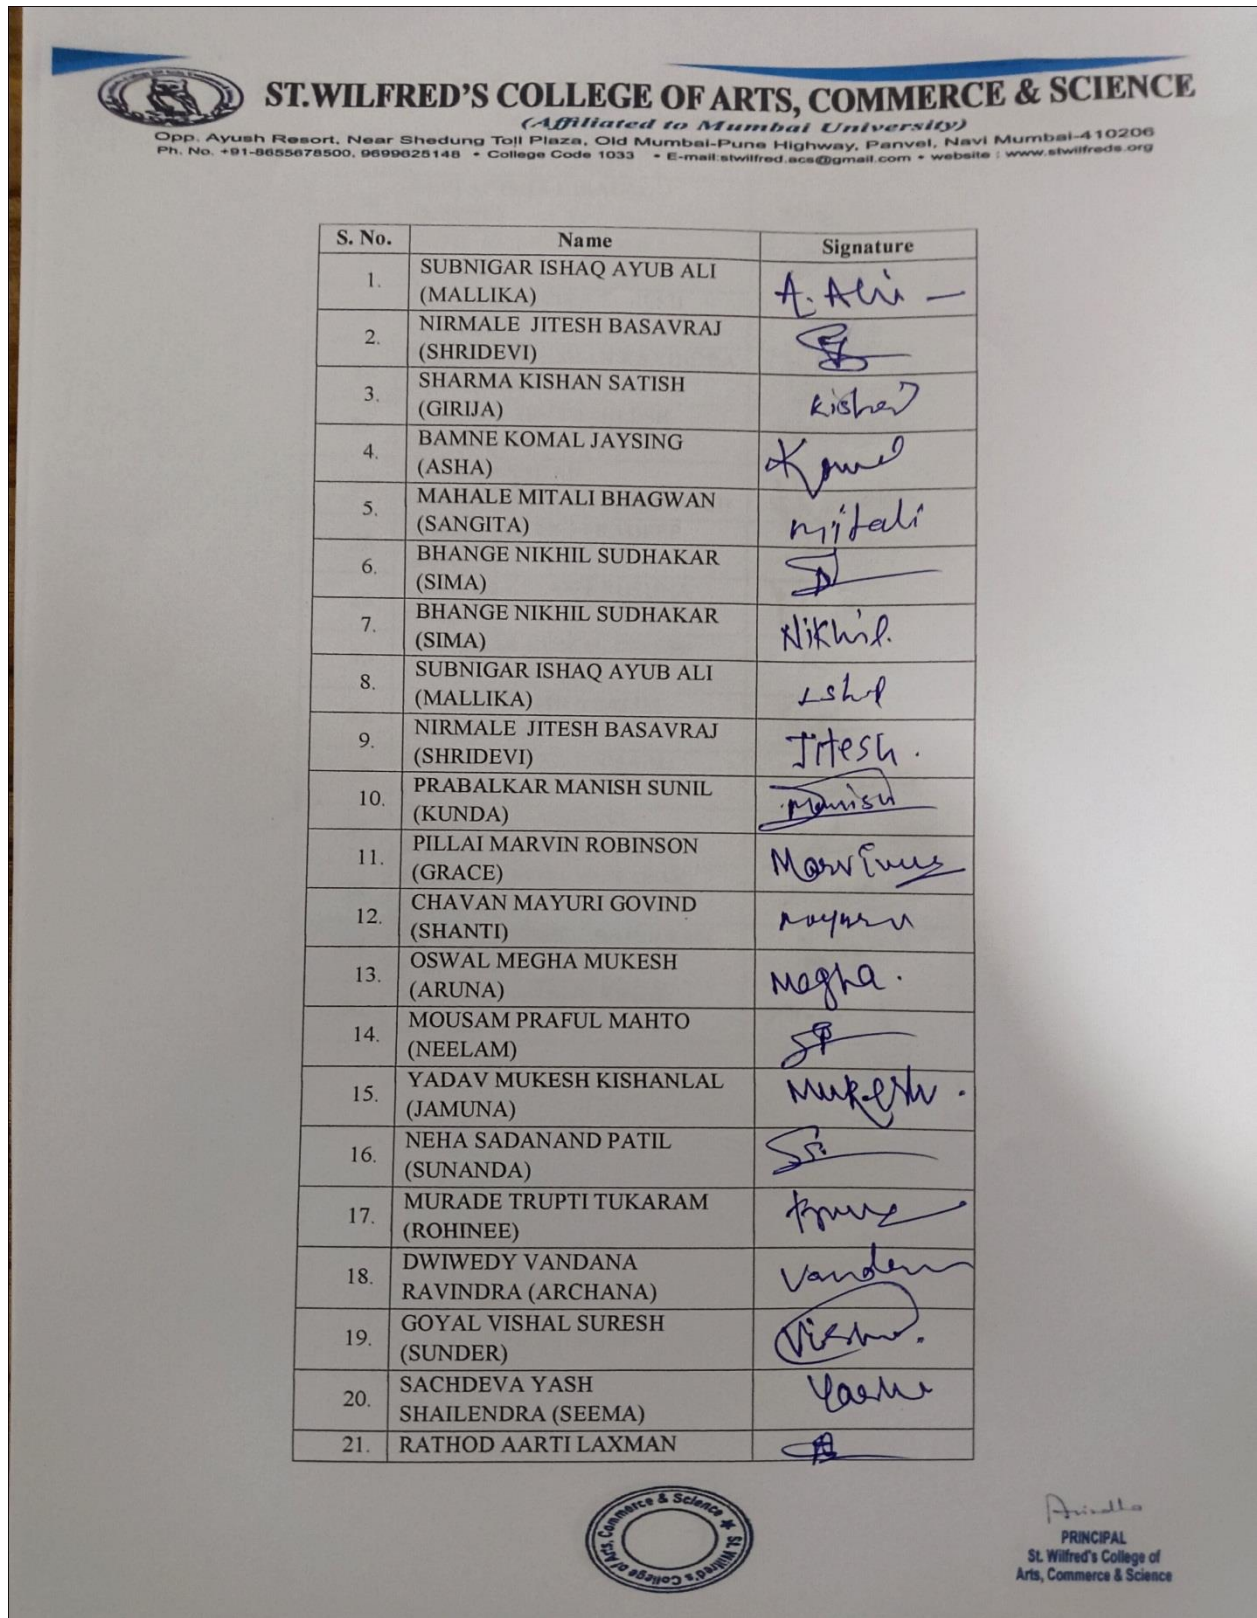 ST.WILFRED'S COLLEGE OF ARTS, COMMERCE & SCIENCE
(Affiliated to Mumbai University)
Opp. Ayush Resort, Near Shedung Toll Plaza, Old Mumbai-Pune Highway, Panvel, Navi Mumbai-410206
Ph. No. +91-8655678500, 9699625148 • College Code 1033 • E-mail:stwilfred.acs@gmail.com • website : www.stwilfreds.org
S. No. Name Signature
1. SUBNIGAR ISHAQ AYUB ALI
(MALLIKA) A. Ali
2. NIRMALE JITESH BASAVRAJ
(SHRIDEVI)
3. SHARMA KISHAN SATISH
(GIRIJA) Kishan
4. BAMNE KOMAL JAYSING
(ASHA) Komal
5. MAHALE MITALI BHAGWAN
(SANGITA) Mitali
6. BHANGE NIKHIL SUDHAKAR
(SIMA)
7. BHANGE NIKHIL SUDHAKAR
(SIMA) Nikhil.
8. SUBNIGAR ISHAQ AYUB ALI
(MALLIKA)
9. NIRMALE JITESH BASAVRAJ
(SHRIDEVI) Jitesh.
10. PRABALKAR MANISH SUNIL
(KUNDA) Manish
11. PILLAI MARVIN ROBINSON
(GRACE)
12. CHAVAN MAYURI GOVIND
(SHANTI)
13. OSWAL MEGHA MUKESH
(ARUNA) Megha.
14. MOUSAM PRAFUL MAHTO
(NEELAM)
15. YADAV MUKESH KISHANLAL
(JAMUNA) Mukesh.
16. NEHA SADANAND PATIL
(SUNANDA)
17. MURADE TRUPTI TUKARAM
(ROHINEE)
18. DWIWEDY VANDANA
RAVINDRA (ARCHANA)
19. GOYAL VISHAL SURESH
(SUNDER)
20. SACHDEVA YASH
SHAILENDRA (SEEMA)
21. RATHOD AARTI LAXMAN
St. Wilfred's College of Arts, Commerce & Science
PRINCIPAL
St. Wilfred's College of
Arts, Commerce & Science